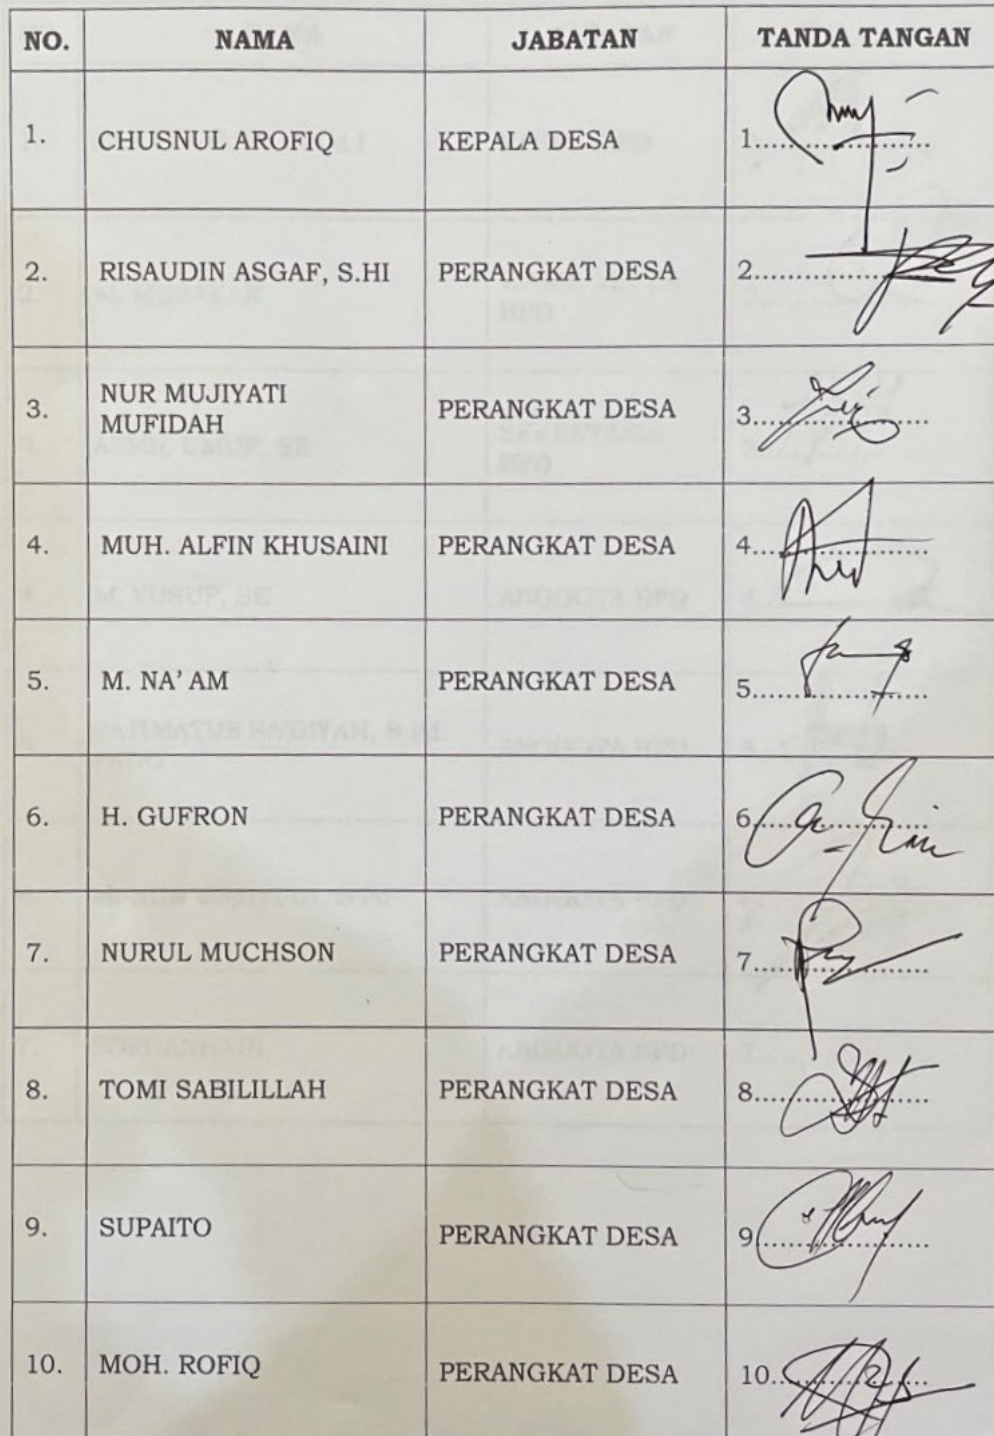 NO. NAMA JABATAN TANDA TANGAN
1. CHUSNUL AROFIQ KEPALA DESA 1.....................
2. RISAUDIN ASGAF, S.HI PERANGKAT DESA 2.....................
3. NUR MUJIYATI
MUFIDAH PERANGKAT DESA 3.....................
4. MUH. ALFIN KHUSAINI PERANGKAT DESA 4.....................
5. M. NA' AM PERANGKAT DESA 5.....................
6. H. GUFRON PERANGKAT DESA 6.....................
7. NURUL MUCHSON PERANGKAT DESA 7.....................
8. TOMI SABILILLAH PERANGKAT DESA 8.....................
9. SUPAITO PERANGKAT DESA 9.....................
10. MOH. ROFIQ PERANGKAT DESA 10.....................